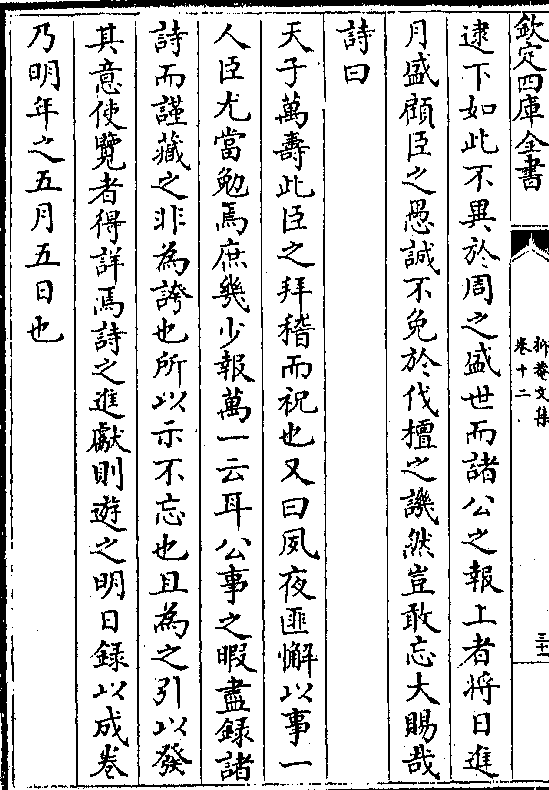 欽定四庫全書
抑菴文集
卷十二
三十一
逮下如此不異於周之盛世而諸公之報上者將日進
月盛顧臣之愚誠不免於伐檀之譏然豈敢忘大賜哉
詩曰
天子萬壽此臣之拜稽而祝也又曰夙夜匪懈以事一
人臣尤當勉焉庶幾少報萬一云耳公事之暇盡録諸
詩而謹藏之非為誇也所以示不忘也且為之引以發
其意使覽者得詳焉詩之進獻則遊之明日録以成卷
乃明年之五月五日也